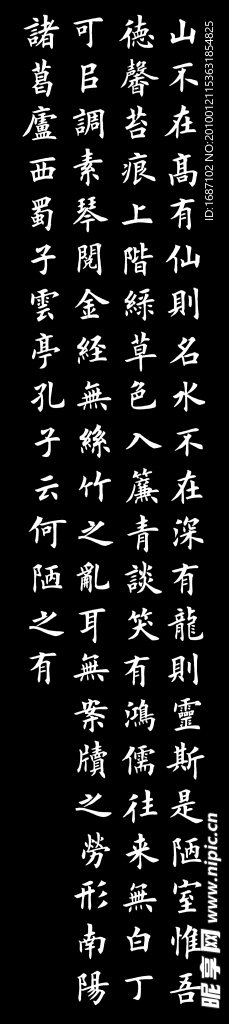 山不在高有仙則名水不在深有龍則靈斯是陋室惟吾
德馨苔痕上階綠草色入簾青談笑有鴻儒往来無白丁
可㠯調素琴閱金経無絲竹之亂耳無案牘之勞形南陽
諸葛廬西蜀子雲亭孔子云何陋之有
ID:1687102 NO:20100121153631854825
昵享网 www.nipic.cn